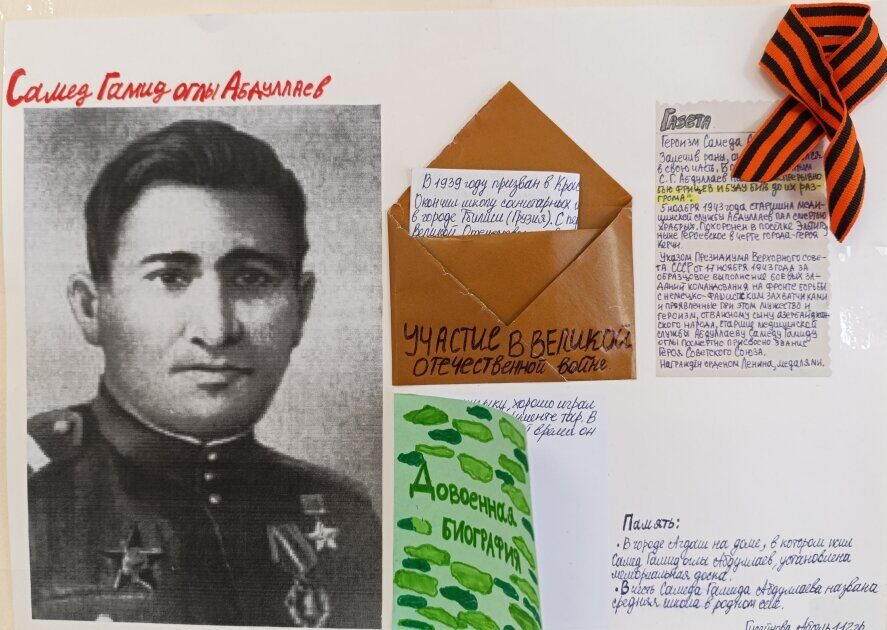 Самед Гамид оглы Абдуллаев
В 1939 году призван в
Окончил школу санитарных
в городе Тбилиси (Грузия). С
Великой
УЧАСТИЕ В ВЕЛИКОЙ
ОТЕЧЕСТВЕННОЙ ВОЙНЕ
хорошо играл
тар. В
время он
Довоенная
БИОГРАФИЯ
ГАЗЕТА
Героизм Самеда
Залечив раны,
в свою часть. В
С.Г. Абдуллаев
бью фрицев и буду бить до их раз-
грома".
5 ноября 1943 года старшина меди-
цинской службы Абдуллаев пал смертью
храбрых. Похоронен в посёлке
ныне Героевское в черте города-героя
Керчи.
Указом Президиума Верховного сове-
та СССР от 17 ноября 1943 года за
образцовое выполнение боевых за-
даний командования на фронте борьбы
с немецко-фашистским захватчиками
и проявленные при этом мужество и
героизм, отважному сыну азербайджан-
ского народа, старшине медицинской
службы Абдуллаеву Самеду Гамиду
оглы посмертно присвоено звание
Героя Советского Союза.
Награждён орденом Ленина, медалями.
Память:
• В городе Агдаш на доме, в котором жил
Самед Гамид оглы Абдуллаев, установлена
мемориальная доска.
• В честь Самеда Гамида Абдуллаева названа
средняя школа в родном селе.
112гр